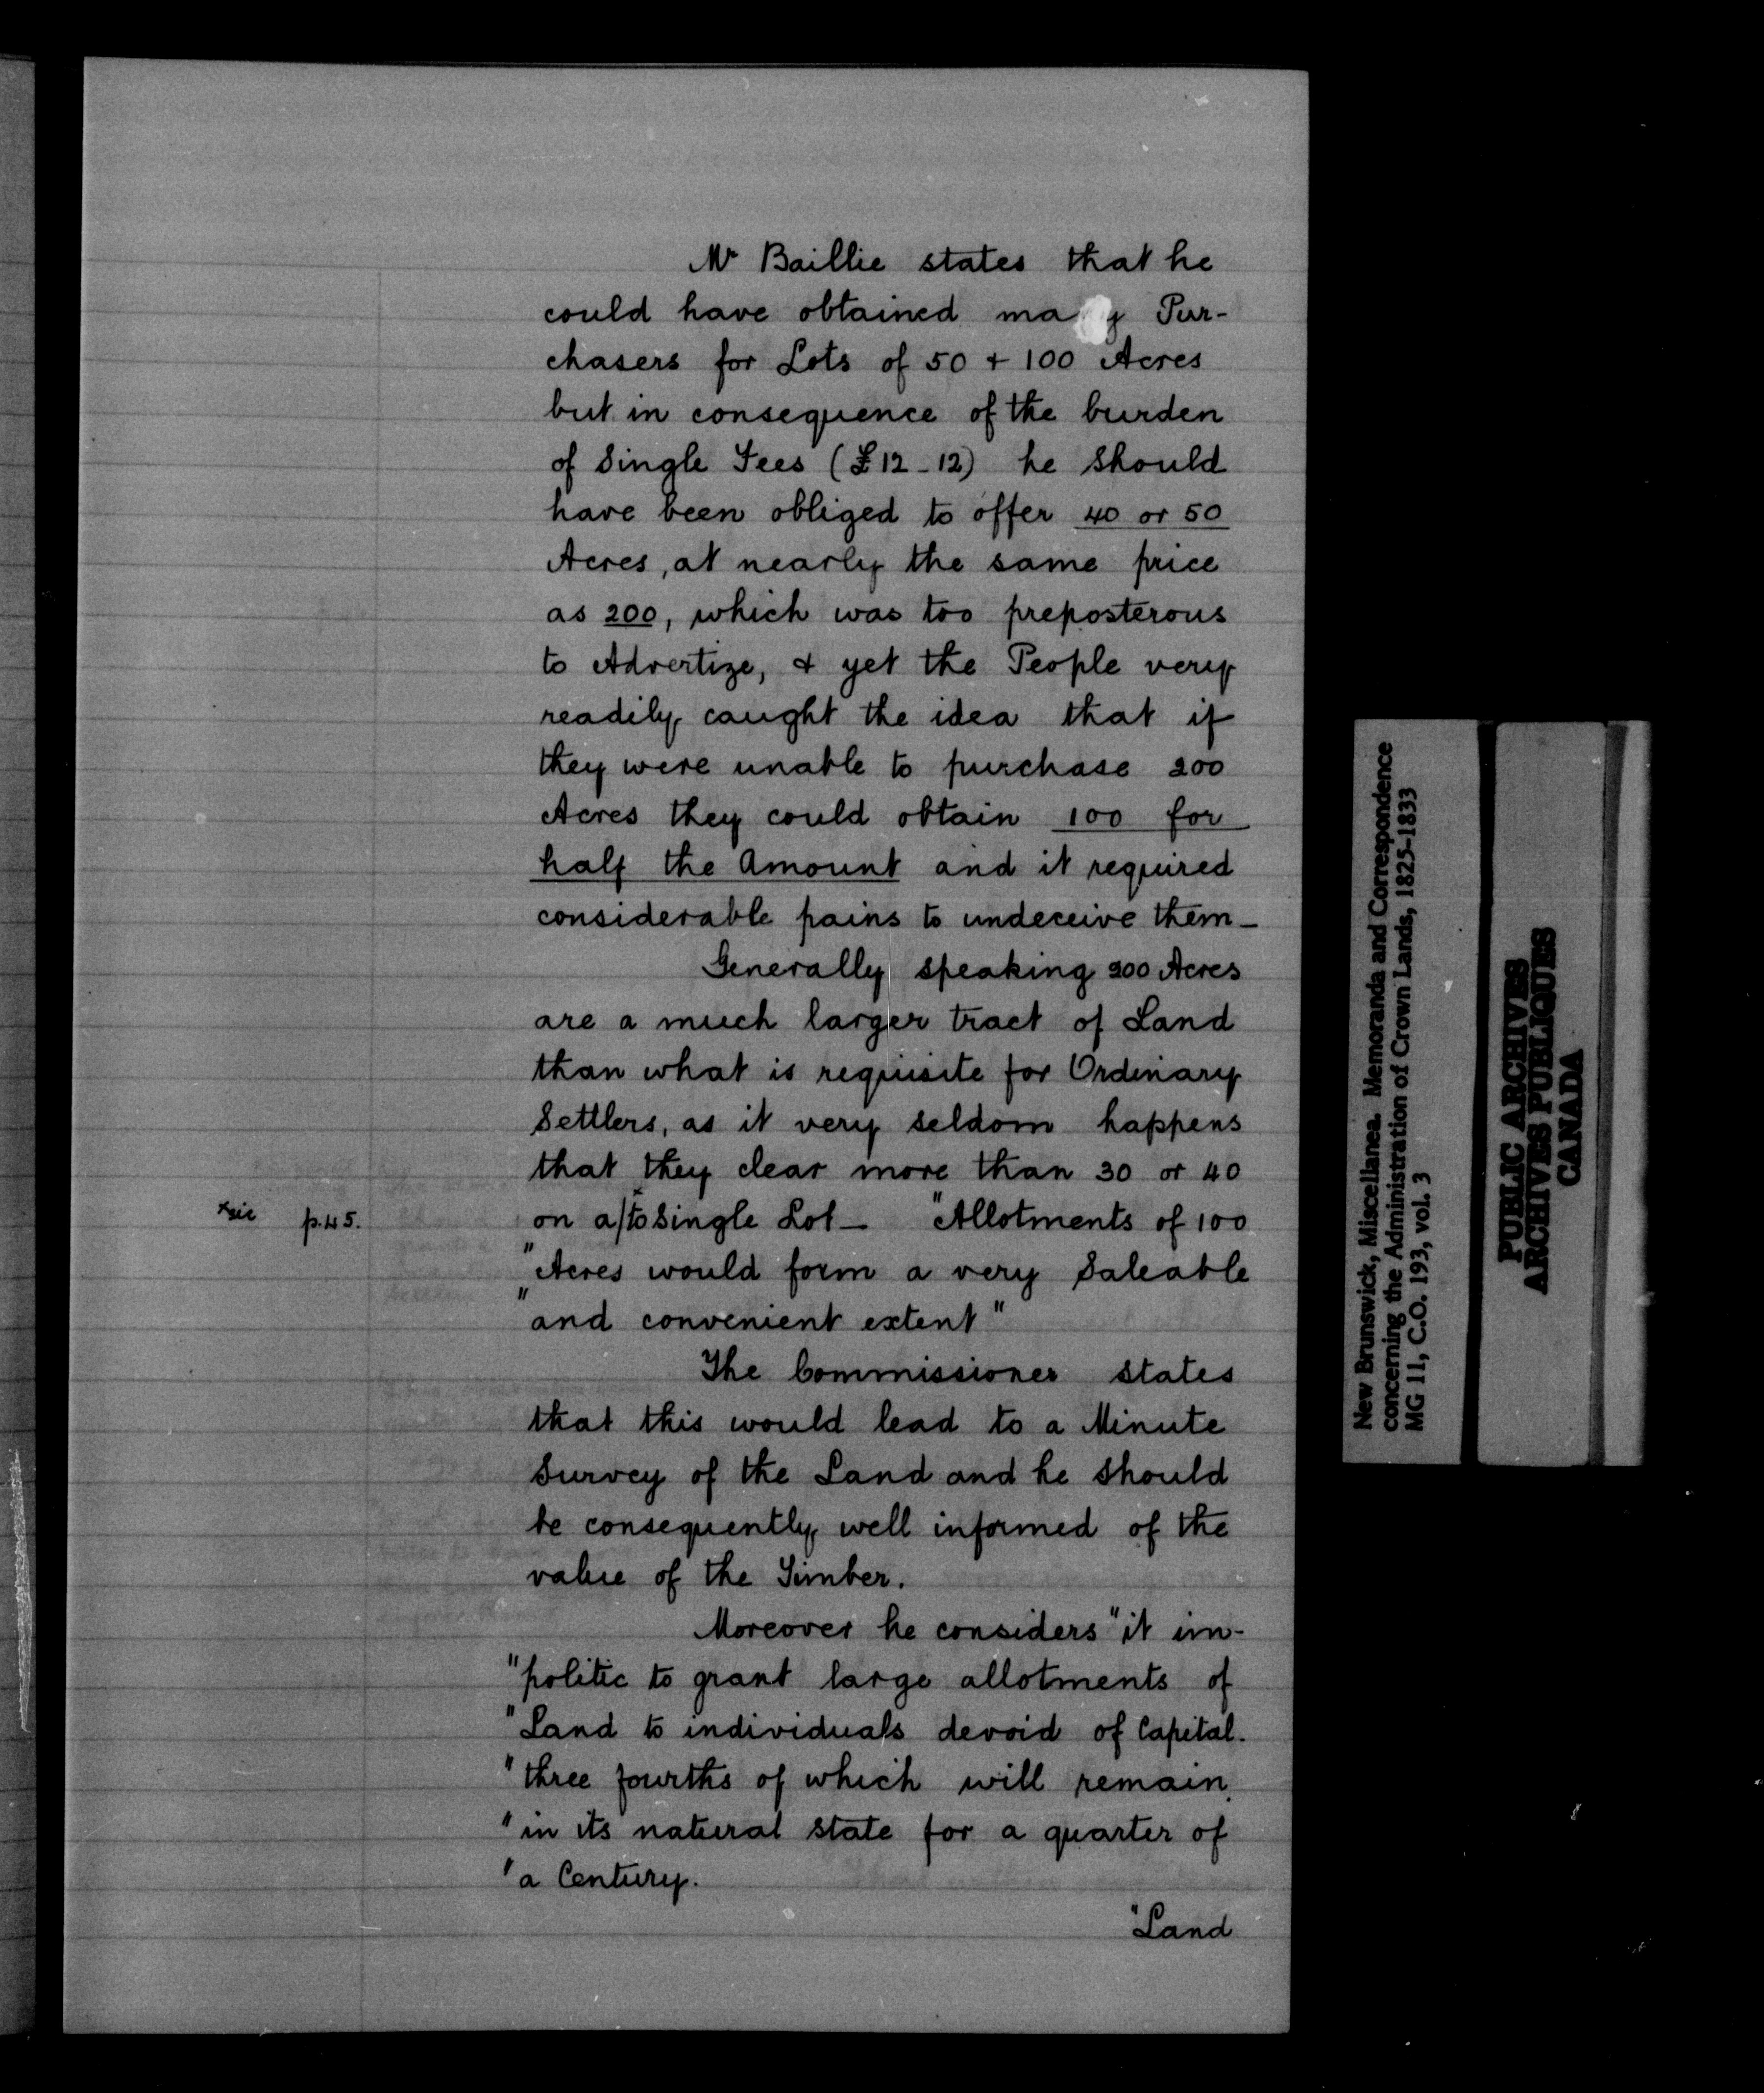 Mr Baillie states that he
could have obtained many Pur-
chasers for Lots of 50 + 100 Acres
but in consequence of the burden
of Single Fees (£12-12) he should
have been obliged to offer 40 or 50
Acres, at nearly the same price
as 200, which was too preposterous
to Advertize, & yet the People very
readily caught the idea that if
they were unable to purchase 200
Acres they could obtain 100 for
half the Amount and it required
considerable pains to undeceive them_
Generally speaking 200 Acres
are a much larger tract of Land
than what is requisite for Ordinary
Settlers, as it very seldom happens
that they clear more than 30 or 40
xsic p.45.
on a/to x Single Lot_ "Allotments of 100
"Acres would form a very Saleable
"and convenient extent"
The Commissioner states
that this would lead to a Minute
Survey of the Land and he should
be consequently well informed of the
value of the Timber.
Moreover he considers "it im-
"politic to grant large allotments of
"Land to individuals devoid of Capital.
"three fourths of which will remain
"in its natural state for a quarter of
"a Century.
"Land
New Brunswick, Miscellanea. Memoranda and Correspondence
concerning the Administration of Crown Lands, 1825-1833
MG 11, C.O. 193, vol. 3
PUBLIC ARCHIVES
ARCHIVES PUBLIQUES
CANADA